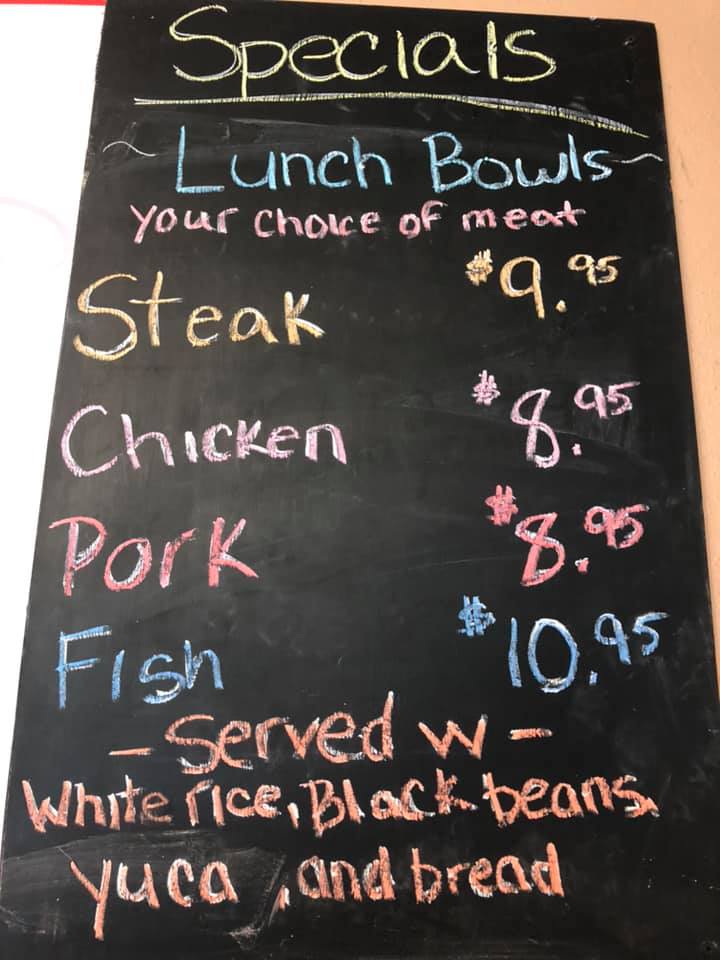 Specials
~ Lunch Bowls ~
your choice of meat
Steak $9.95
Chicken $8.95
Pork $8.95
Fish $10.95
- Served w -
White rice, Black beans,
yuca, and bread